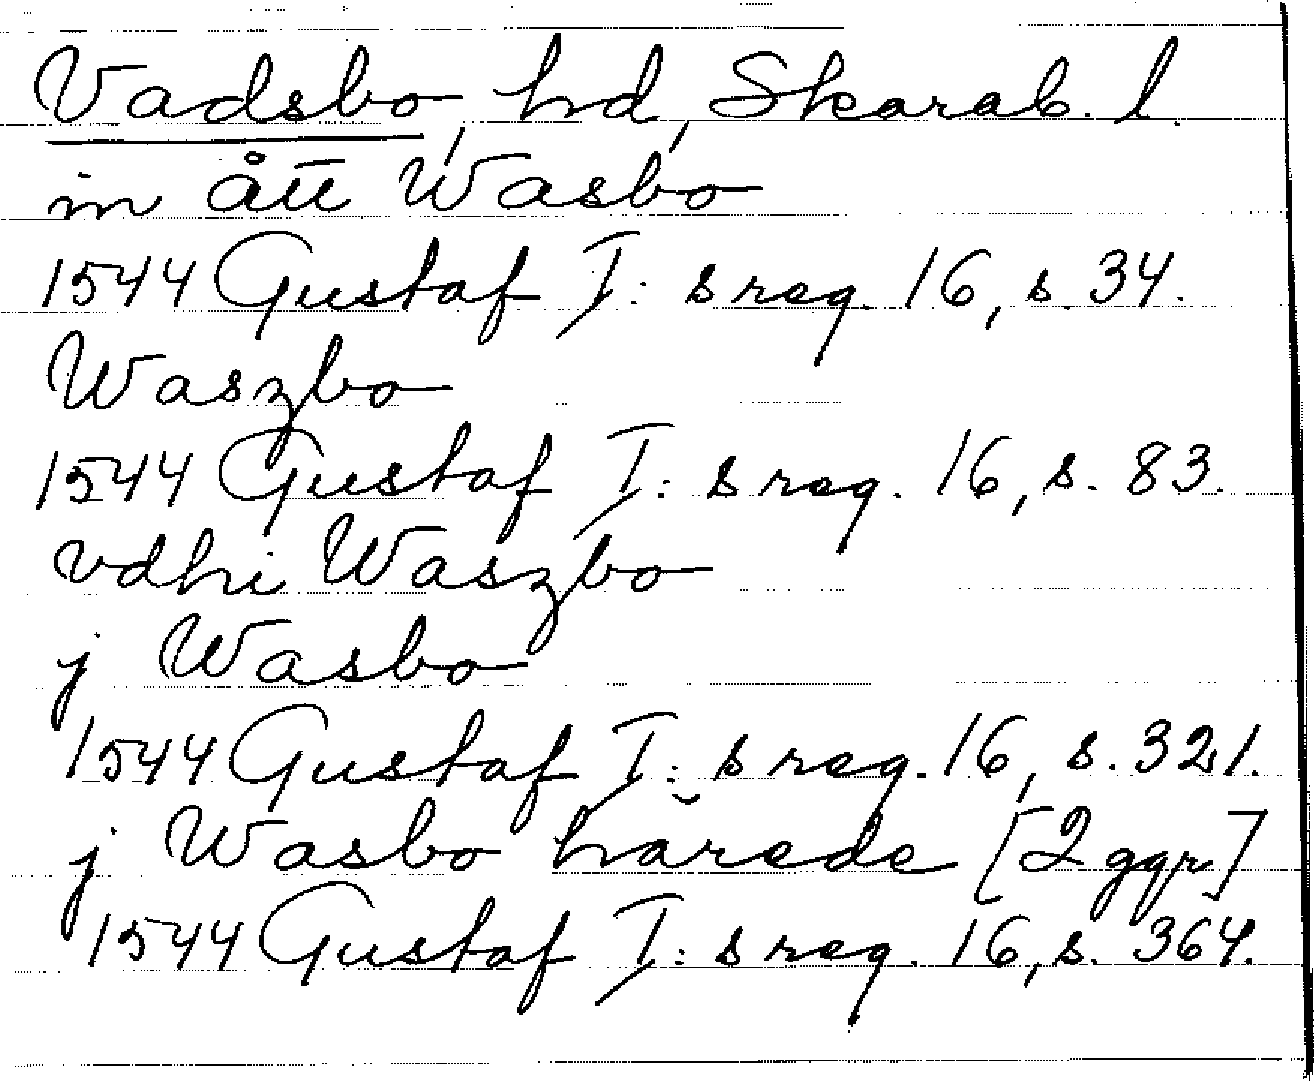 Vadsbo, hd, Skarab. l.
in ått Wasbo
1544 Gustaf I:s reg. 16, s. 34.
Waszbo
1544 Gustaf I:s reg. 16, s. 83.
vdhi Waszbo
j Wasbo
1544 Gustaf I:s reg. 16, s. 321.
j Wasbo hărede [2 ggr]
1544 Gustaf I:s reg. 16, s. 364.